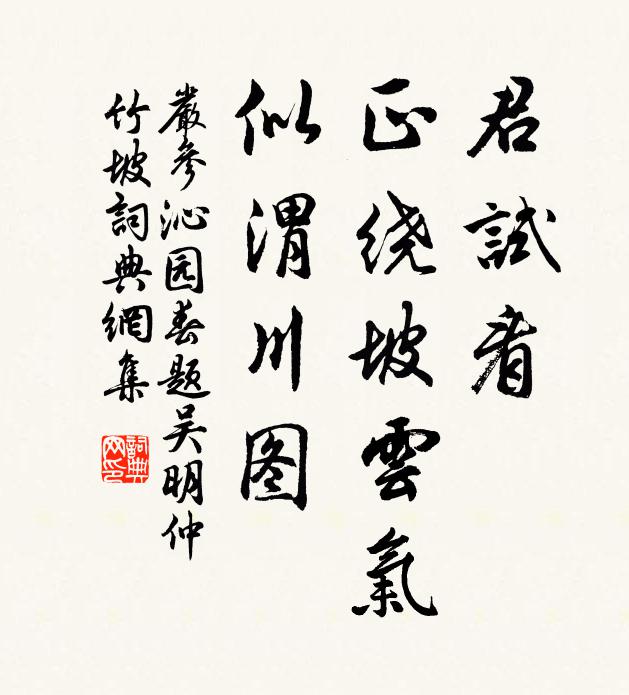 君試看
正绕坡雲氣
似渭川图
嚴參沁园春題吴明仲
竹坡詞典網集
詞典网印